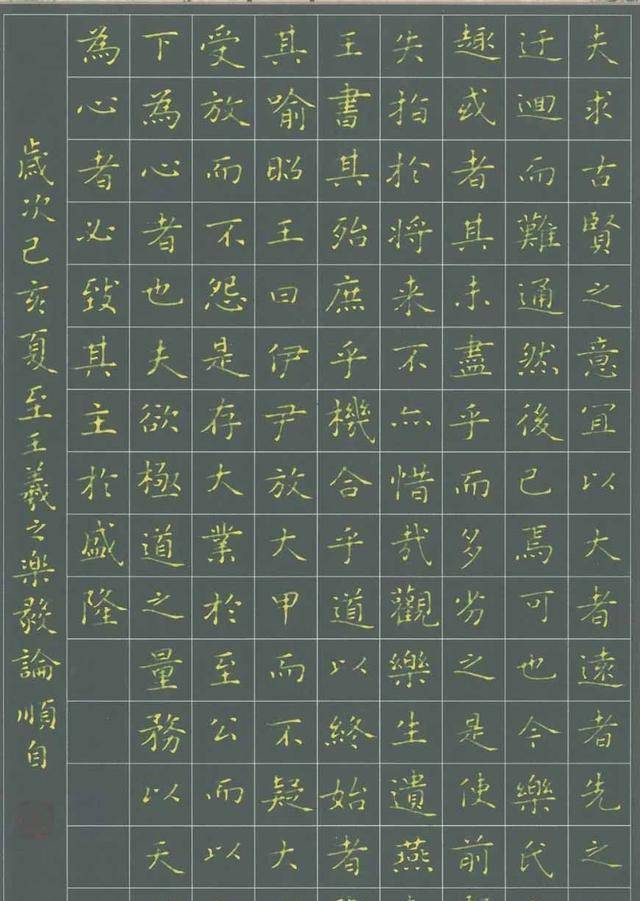 夫求古賢之意宜以大者遠者先之
迂迴而難通然後已焉可也今樂氏
趣或者其未盡乎而多劣之是使前
失指於將来不亦惜哉觀樂生遺燕
王書其殆庶乎機合乎道以終始者
其喻昭王曰伊尹放大甲而不疑大
受放而不怨是存大業於至公而以
下為心者也夫欲極道之量務以天
為心者必致其主於盛隆
歲次己亥夏至王羲之樂毅論順自